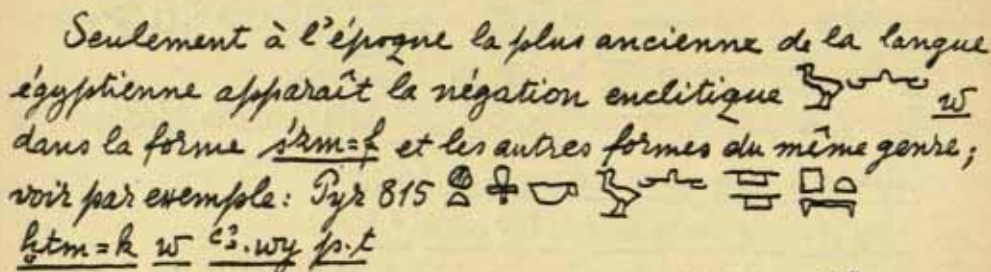 Seulement à l'époque la plus ancienne de la langue
égyptienne apparaît la négation enclitique 𓅱𓂜 w
dans la forme śḏm=f et les autres formes du même genre;
voir par exemple: Pyr 815 𓐍𓏏 𓎡 𓅱𓂜 𓊪𓏏𓇯
ḫtm=k w ꜥꜣ.wy p.t